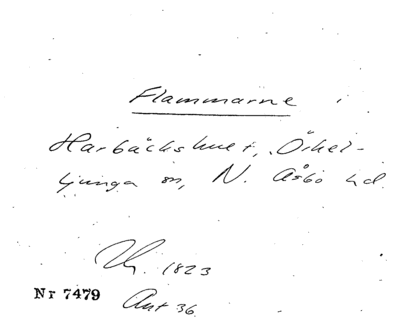 Flammarne i
Harbäckshult, Örkel-
ljunga sn, N. Åsbo hd.
1823
Nr 7479
Ant 36